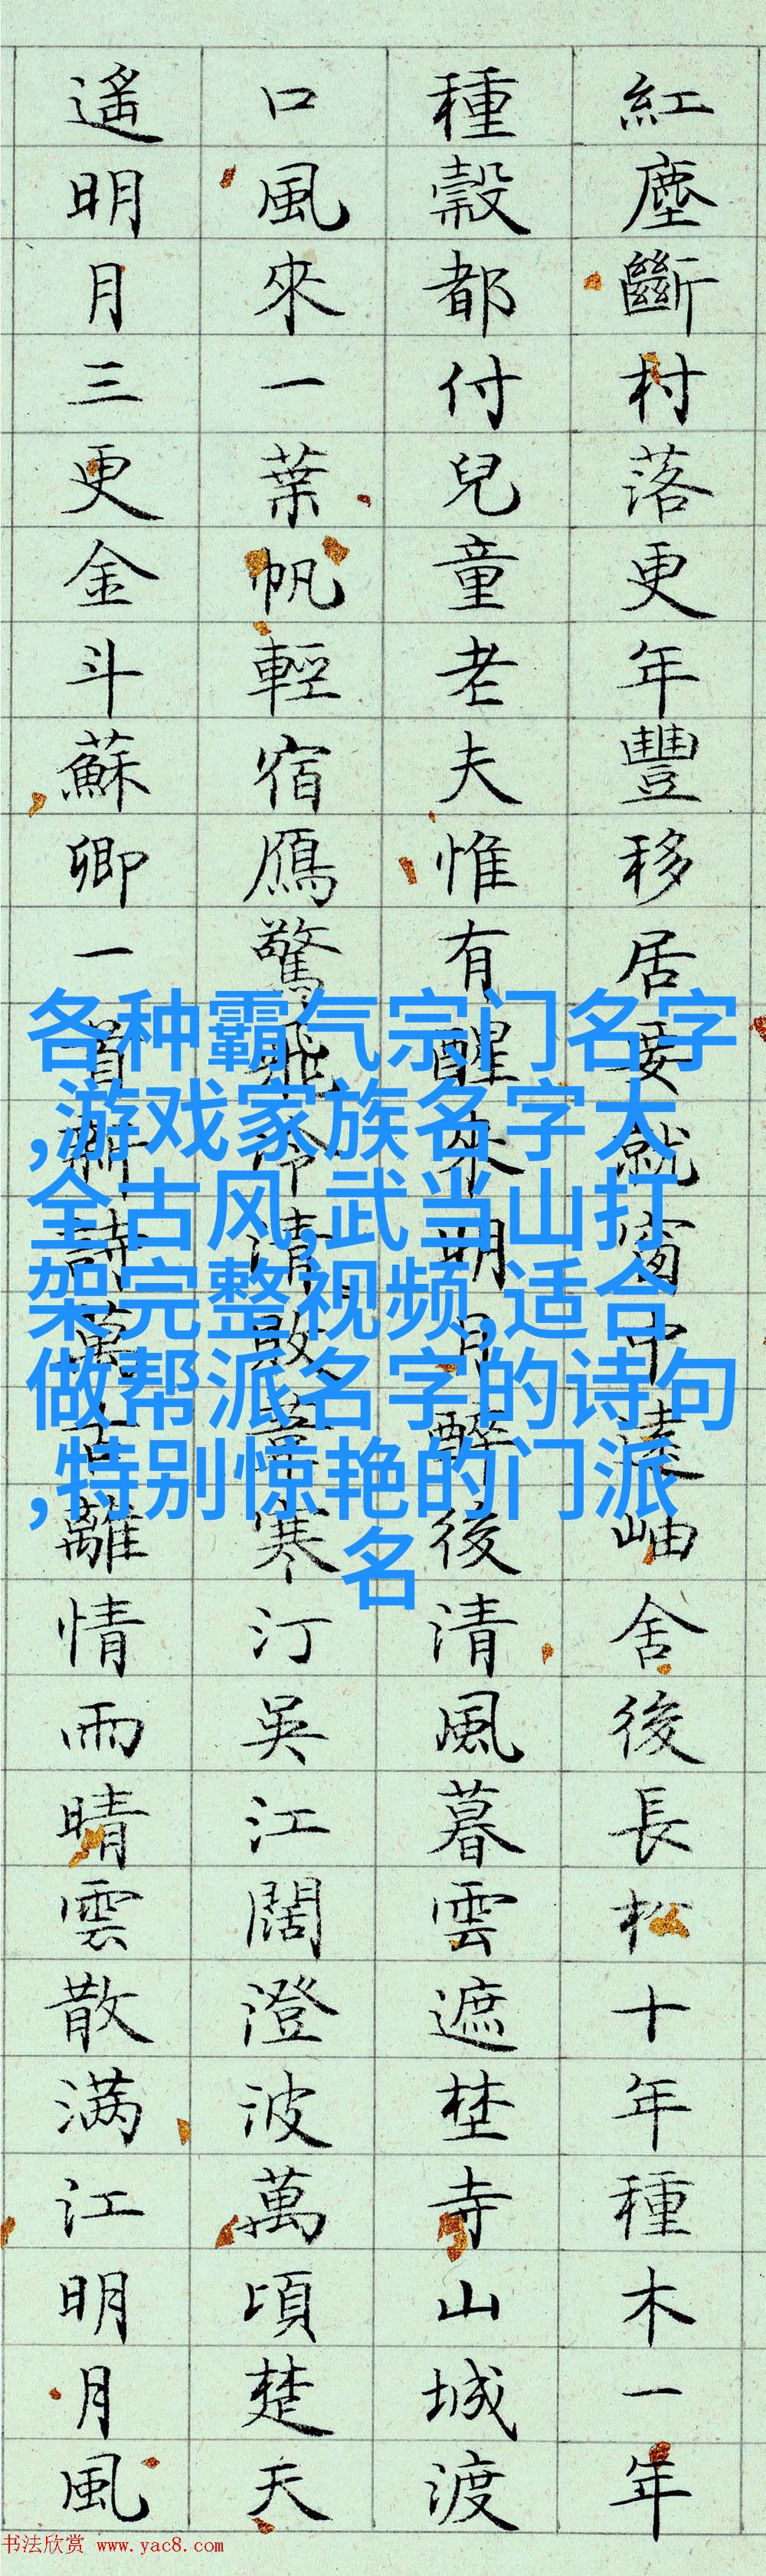 紅塵斷村落更年豐移居要就窗中遠岫舍後長松十年種木一年
種穀都付兒童老夫惟有醒來明月醉後清風暮雲遮埜寺山城渡
口風來一葉帆輕宿鴈驚飛冷清敗葦寒汀吳江闊澄波萬頃楚天
遙明月三更金斗蘇卿一首新詩萬古離情雨晴雲散满江明月風
各种霸气宗门名字
,游戏家族名字大
全古风,武当山打
架完整视频,适合
做帮派名字的诗句
,特别惊艳的门派
名
书法欣赏 www.yac8.com